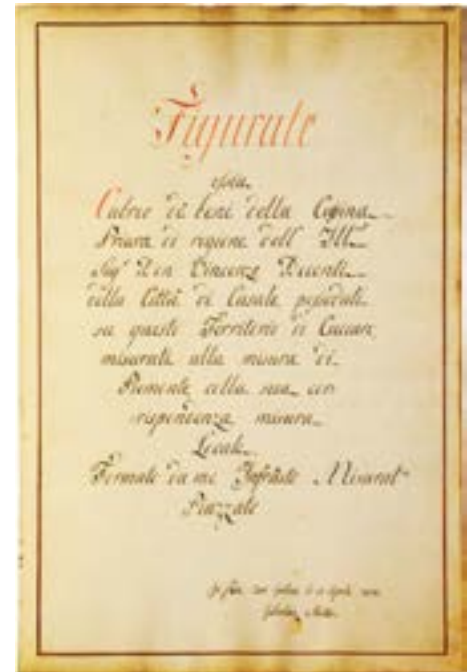 Figurato
ossia
Cabreo di beni della Cassina
Priura di regione dell' Ill.
Sig. Don Vincenzo
della Città di Casale posseduti
su questo Territorio di Cuccaro,
misurato alla misura di
Piemonte colla sua cor
rispondenza misura
Locale
Formato da me Infrãtto Misurat.
Piazzale